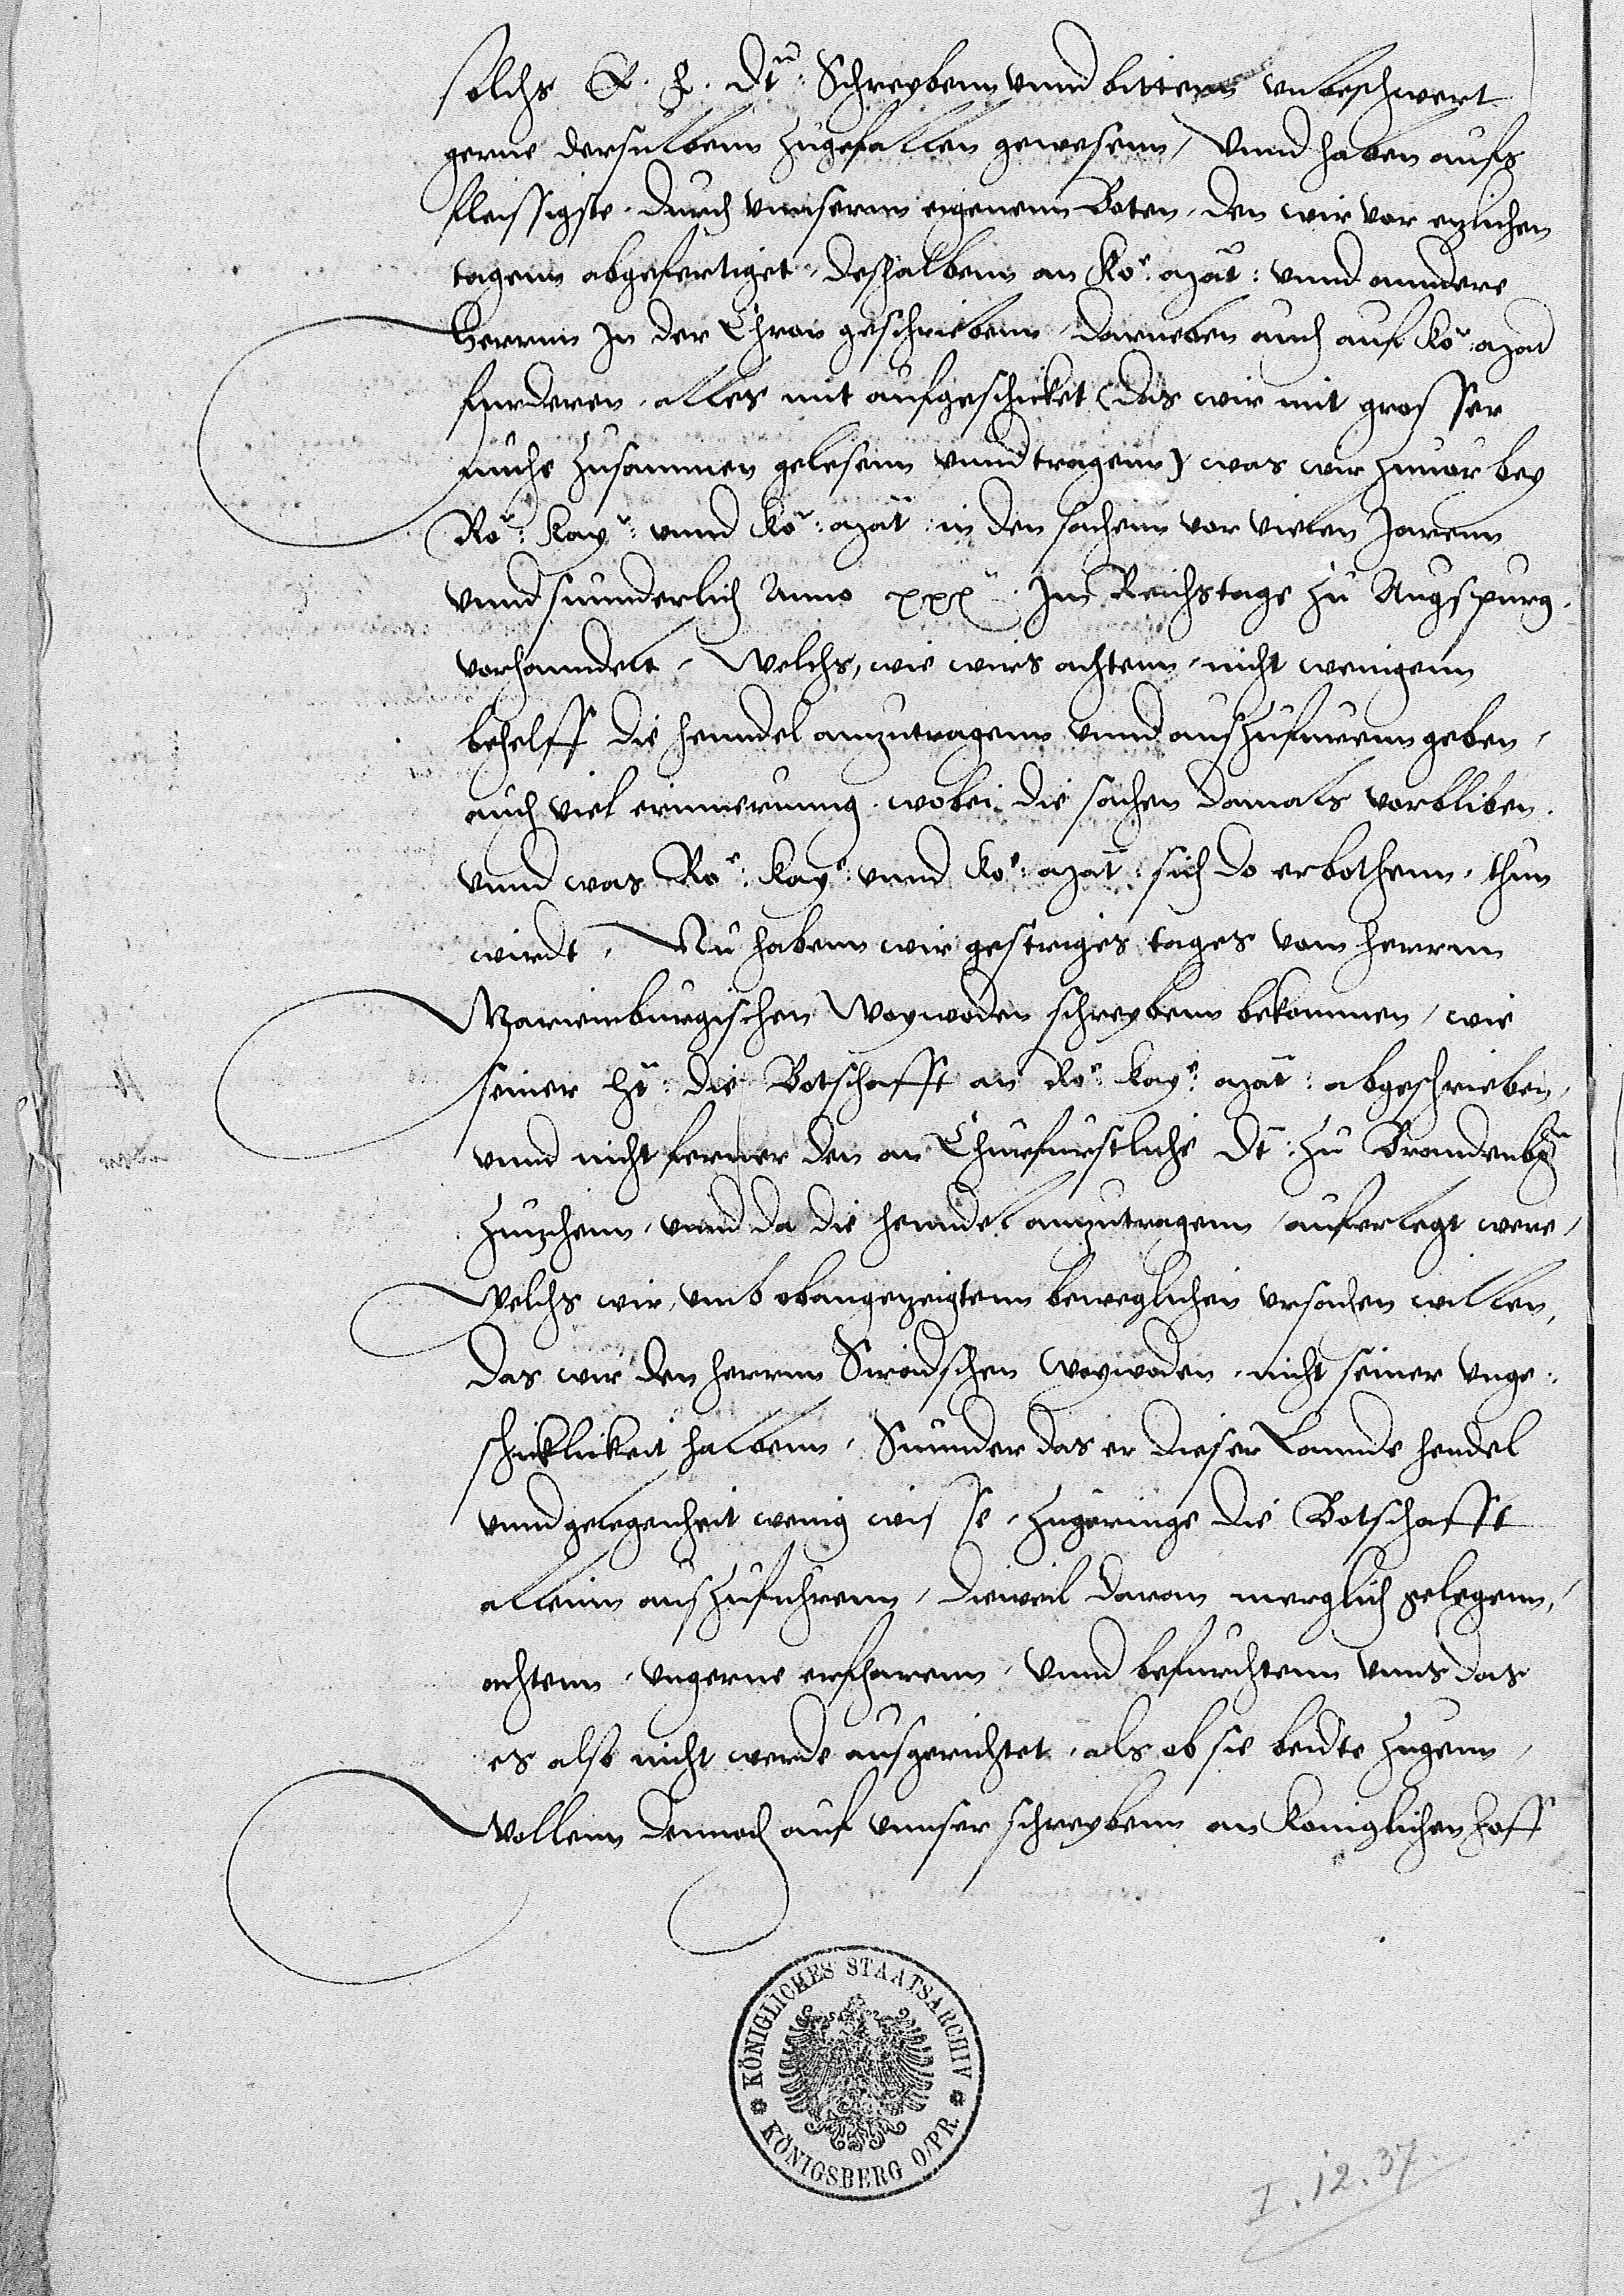 solchs E. f. Dt: Schreybenn vnnd bittens vnbeschwert
gerne derselbenn zugefallen gewesenn, Vnnd haben aufs
fleissigste durch vnnserenn eigenenn Boten, den wir vor etzlichen
tagenn abgefertiget, deshalbenn an Ko: Mat: vnnd anndere
Herrnn Jn der Chron geschriebenn, darneben auch auf Ko: Mat
furderen, alles mit aufgeschicket (das wir mit grosser
muhe zusammen gelesenn vnnd tragenn) was wir zuuor bey
Ro: Kay: vnnd Ko: Mat: in den sachenn vor vielen Jarenn
vnnd sunnderlich Anno xxx Jm Reichstage zu Augspurg
vorhanndelt, Welchs, wie wirs achtenn, nicht wenigenn
behelff die henndel anzutragenn vnnd auszufurenn geben,
auch viel erinnerunng, wobei die sachen damals vorbliben.
vnnd was Ro: Kay: vnnd Ko: Mat: sich do erbothenn, thun
wirdt, Nu habenn wir gestriges tages vom herrnn
Marienburgischen Woywoden schreybenn bekommen, wie
seiner Ht: die Botschafft an Ro: Kay: Mat: abgeschrieben,
vnnd nicht ferner den an Churfurstliche Dt: zu Brandenbg
zuzihenn, vnnd da die henndel anzutragenn, auferlegt were,
Welchs wir, vmb obangezeigtenn beweglichen vrsachen willen,
das wir den herrnn Siradschen woywoden, nicht seiner vnge:
schicklickeit halbenn, Sunnder das er dieser Lannde hendel
vnnd gelegenheit wenig wisse, zugeringe die Botschafft
alleinn auszufuhrenn, dieweil daran merglich gelegenn,
achtenn, vngerne erfharenn, Vnnd befurchtenn vnns das
es also nicht werde ausgerichtet, als ob sie beide zugenn,
Wollenn dennoch auf vnnser schreybenn an Koniglichen hoff
KÖNIGLICHES STAATSARCHIV
KÖNIGSBERG O/PR
I. 12. 37.